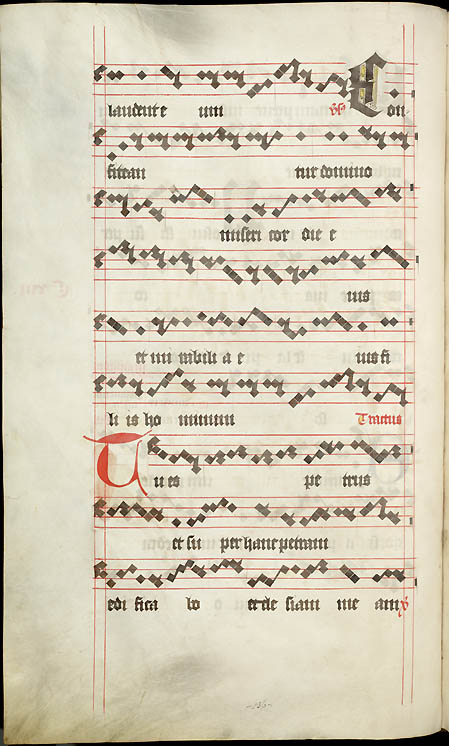 laudent e um v̄s Con
fitean tur domino
miseri cor die e
ius
et mi rabili a e ius fi
li is ho minum Tractus
Tu es pe trus
et su per hanc petram
edi fica bo eccle siam me am v̄